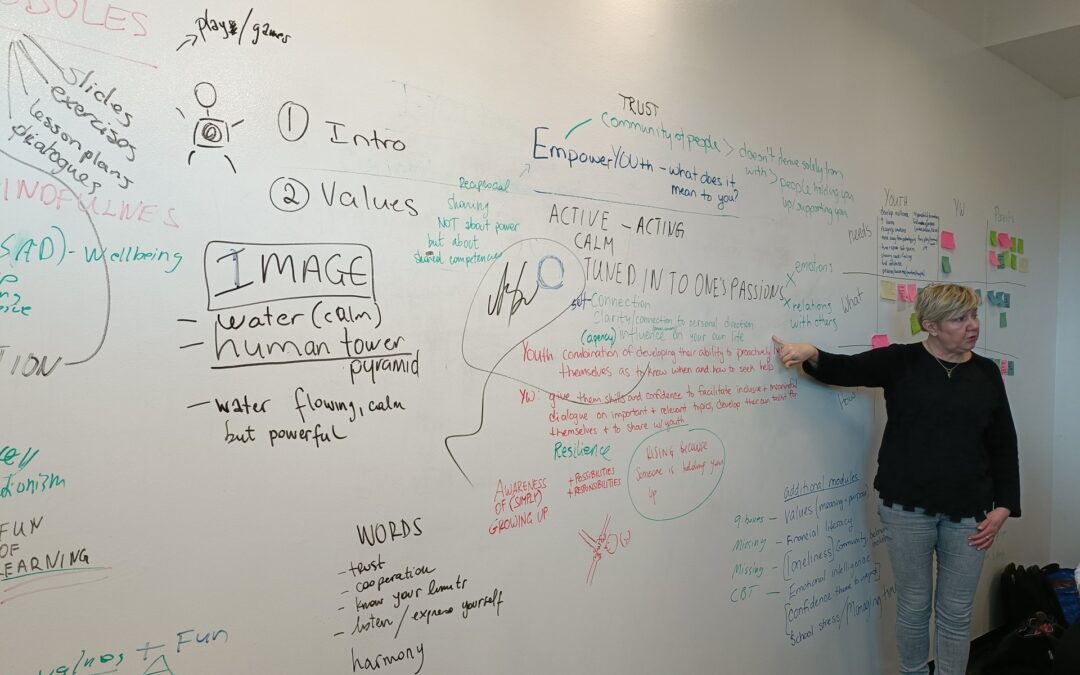 slides
exercises
lesson plans
- Wellbeing
FUN
OF
LEARNING
+ Fun
plays/games
① Intro
② Values
IMAGE
- water (calm)
- human tower
pyramid
- water flowing, calm
but powerful
WORDS
- trust
- cooperation
- know your limits
- listen / express yourself
harmony
Reciprocal
sharing
NOT about power
but about
shared competences
TRUST
Community of people > doesn't derive solely from
with > people holding you
up/supporting you
EmpowerYOUth - what does it
mean to you?
ACTIVE - ACTING
CALM
TUNED IN TO ONE'S PASSIONS
x emotions
x relations
with others
Connection
Clarity/connection to personal direction
(agency) influence on your own life
Youth: combination of developing their ability to proactively
themselves as to know when and how to seek help
YW: give them skills and confidence to facilitate inclusive + meaningful
dialogue on important + relevant topics, develop their own toolkit for
themselves + to share w/youth
Resilience
AWARENESS
OF (SIMPLY)
GROWING UP
+ POSSIBILITIES
+ RESPONSIBILITIES
RISING BECAUSE
someone is holding you
up
additional modules
- values (meaning + purpose)
Missing - Financial literacy
Missing - [loneliness]
CBT - Emotional intelligence
School stress/Managing
YOUTH
YW
Parents
needs
What
How?